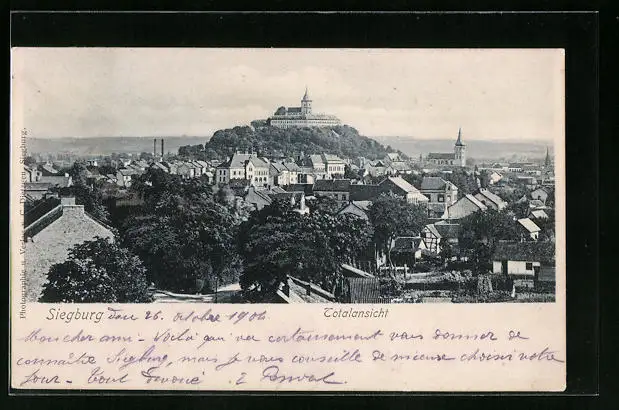 Siegburg den 26. octobre 1906
Totalansicht
Mon cher ami - Voilà qui va certainement vous donner de
connaître Siegburg, mais je vous conseille de mieux choisir votre
jour - Tout dévoué
Photographie u. Verlag v. C. Dietzgen, Siegburg.